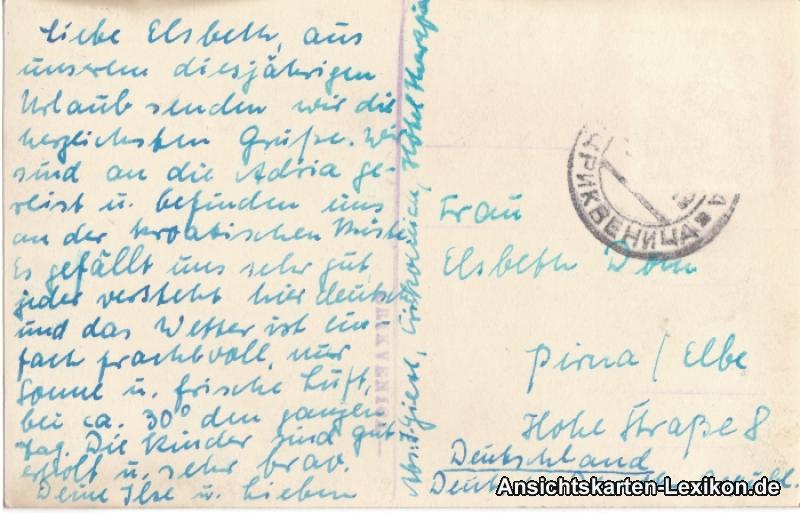 Liebe Elsbeth, aus
unserem diesjährigen
Urlaub senden wir die
herzlichsten Grüße. Wir
sind an die Adria ge-
reist u. befinden uns
an der kroatischen Küste.
Es gefällt uns sehr gut,
jeder versteht hier deutsch
und das Wetter ist ein-
fach prachtvoll, nur
Sonne u. frische Luft,
bei ca. 30° den ganzen
Tag. Die Kinder sind gut
erholt u. sehr brav.
Deine Ilse u. Lieben
Hotel
ЦРИКВЕНИЦА
Frau
Elsbeth
Pirna / Elbe
Hohe Straße 8
Deutschland
Ansichtskarten-Lexikon.de